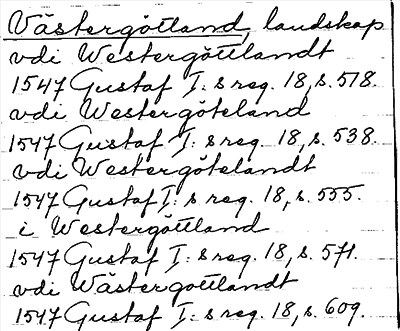 Västergötland, landskap
vdi Westergöttlandt
1547 Gustaf I: s reg. 18, s. 518.
vdi Westergöteland
1547 Gustaf I: s reg. 18, s. 538.
vdi Westergötelandt
1547 Gustaf I: s reg. 18, s. 555.
i Westergöttland
1547 Gustaf I: s reg. 18, s. 571.
vdi Wästergottlandt
1547 Gustaf I: s reg. 18, s. 609.